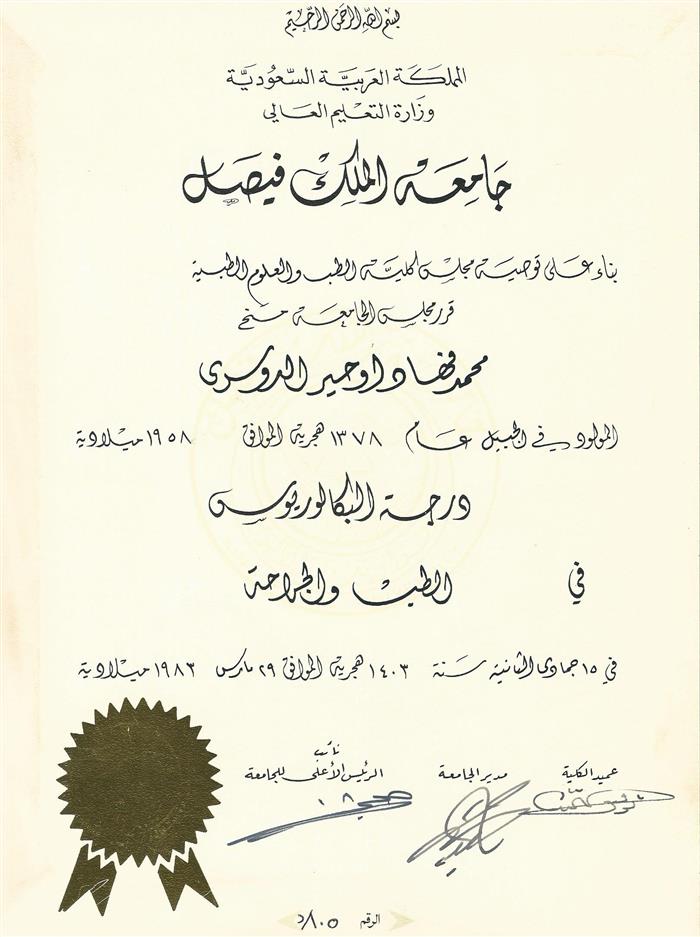 بسم الله الرحمن الرحيم
المملكة العربية السعودية
وزارة التعليم العالي
جامعة الملك فيصل
بناء على توصية مجلس كلية الطب والعلوم الطبية
قرر مجلس الجامعة منح
محمد فهاد اوحير الدوسري
المولود في الجبيل عام ١٣٧٨ هجرية الموافق ١٩٥٨ ميلادية
درجة البكالوريوس
في الطب والجراحة
في ١٥ جمادى الثانية سنة ١٤٠٣ هجرية الموافق ٢٩ مارس ١٩٨٣ ميلادية
عميد الكلية
مدير الجامعة
نائب
الرئيس الأعلى للجامعة
الرقم ٨٠٥/د